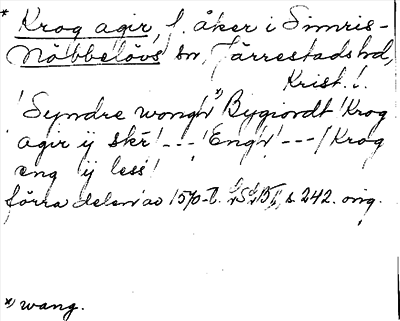 * Krog agir, f. åker i Simris-
Nöbbelövs sn, Järrestads hd,
Krist. l.
'Syndre wongh x) Bygiordt 'Krog
agir ij skr' --- 'Engh' --- / Krog
eng ij less'
förra delen av 1570-t. s. 242. orig.
x) wang.